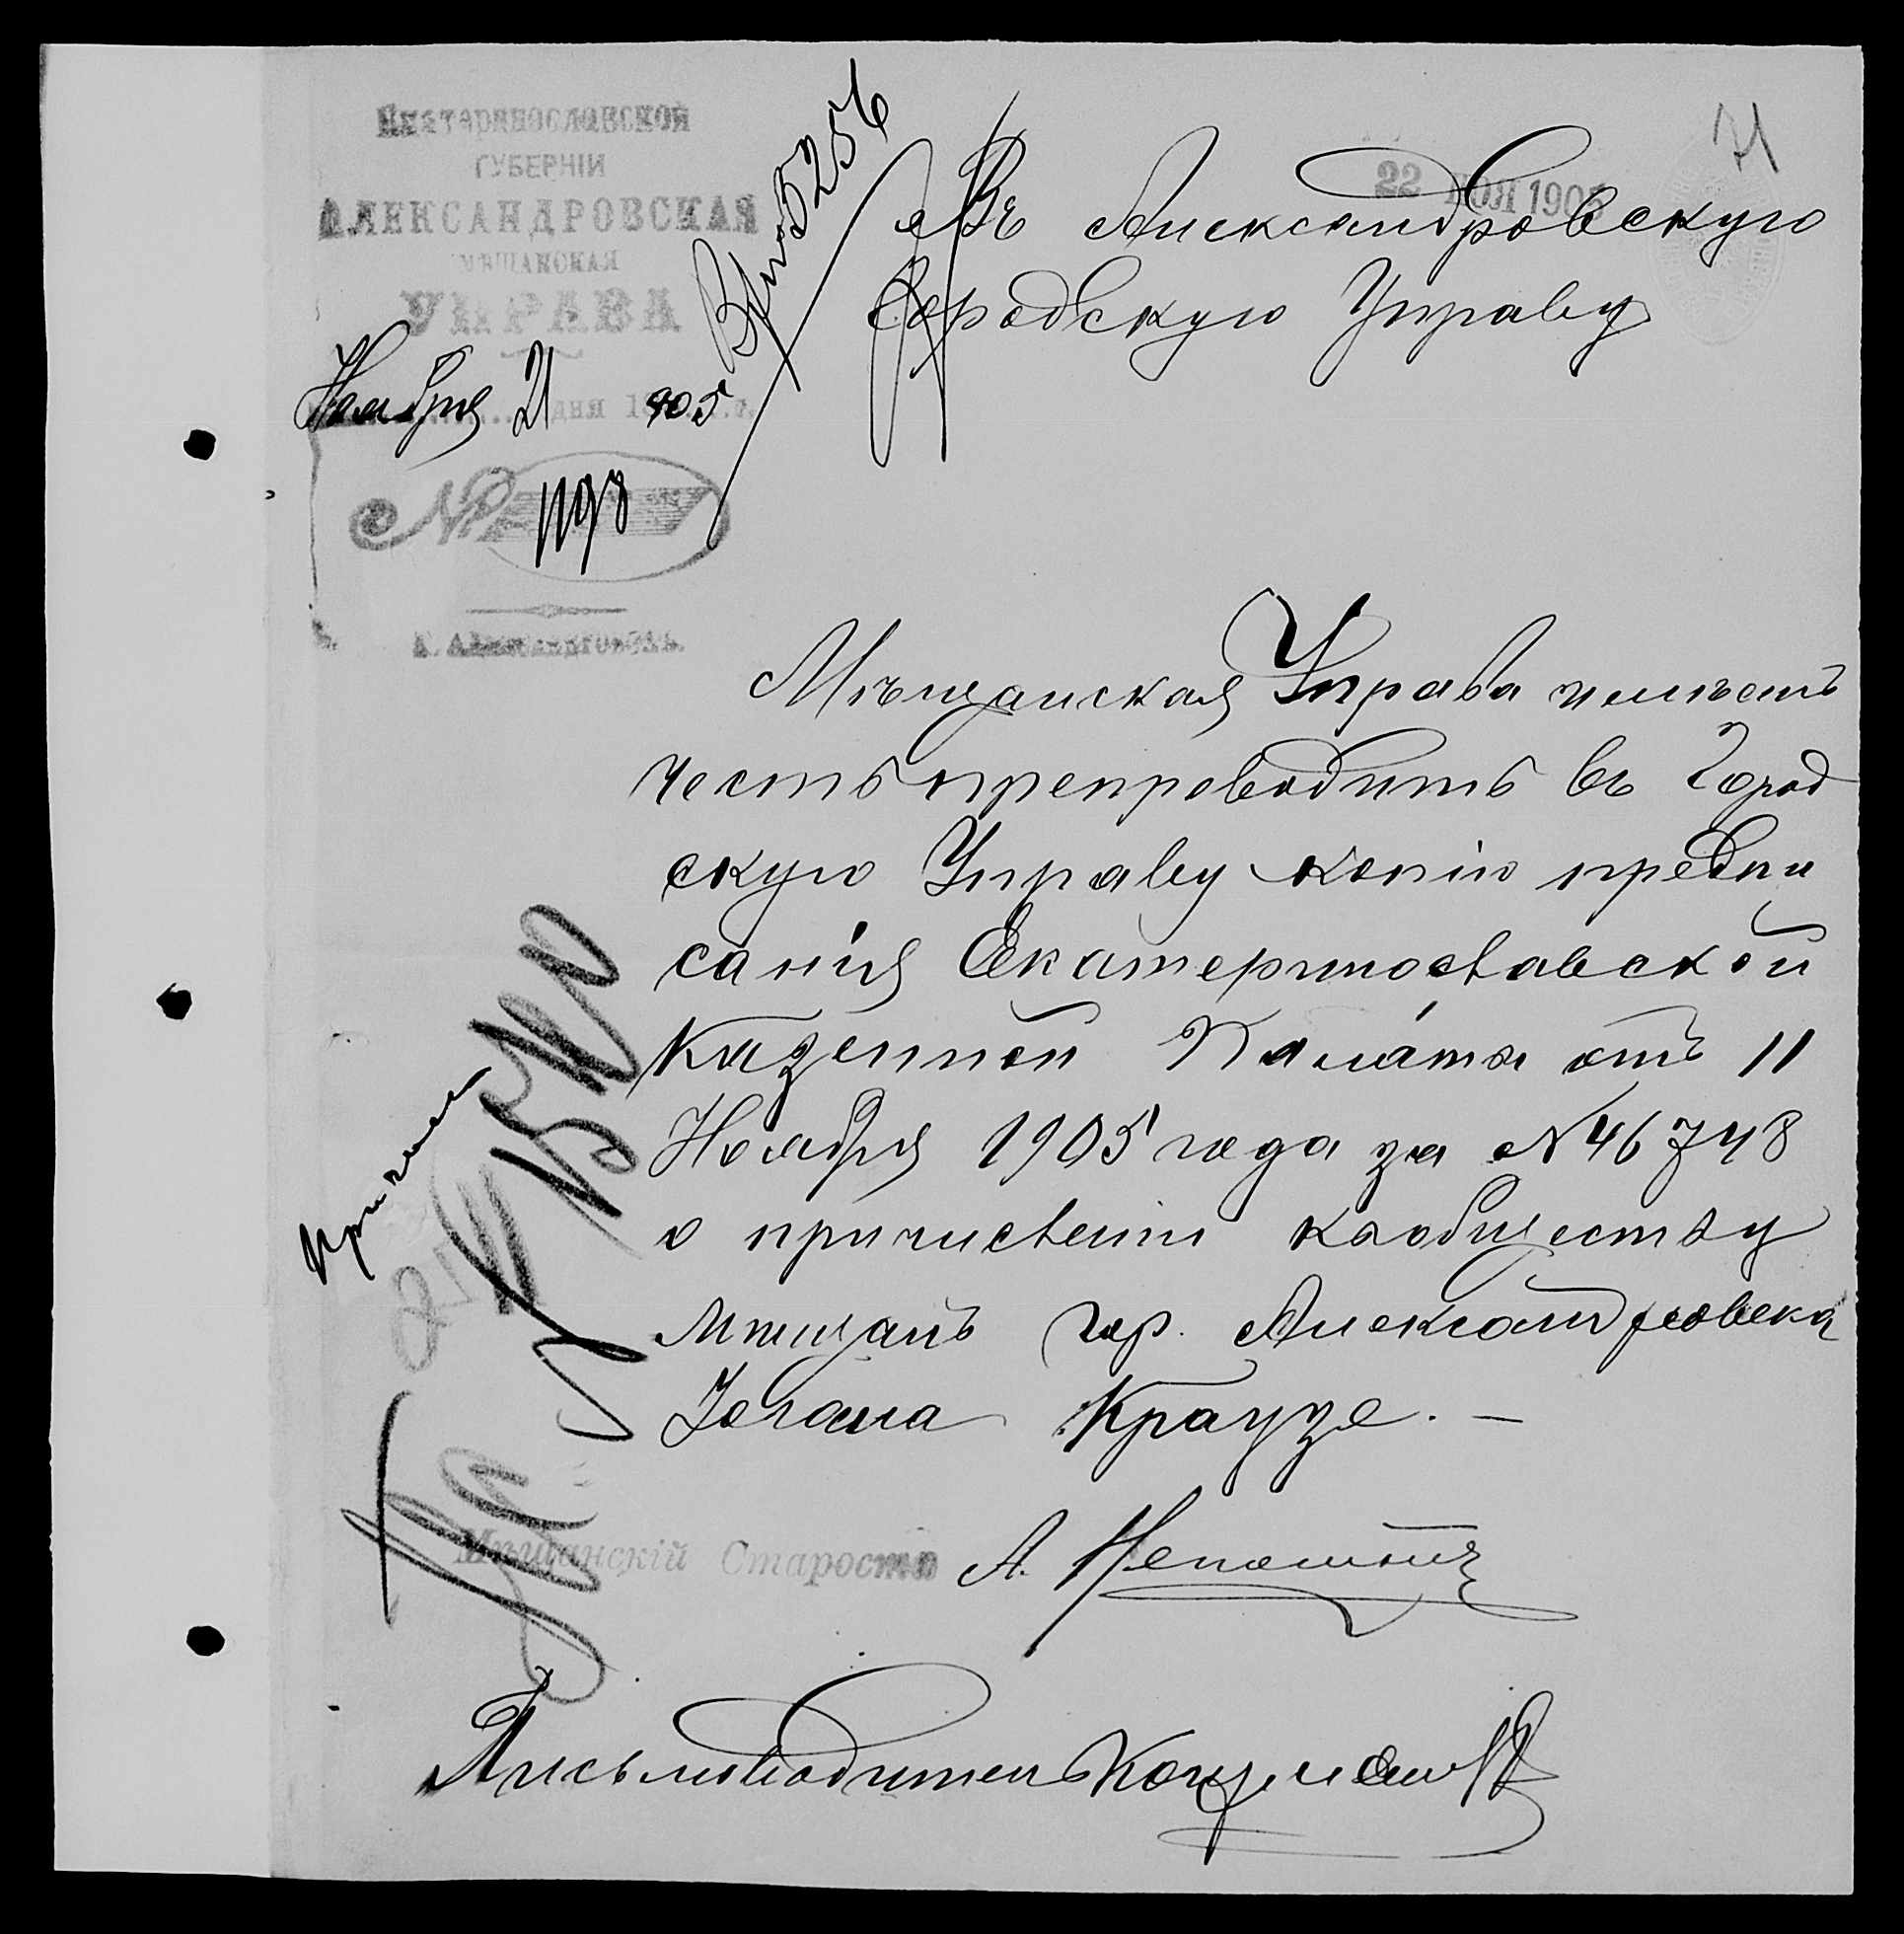 Екатеринославской
ГУБЕРНІИ
АЛЕКСАНДРОВСКАЯ
МѢЩАНСКАЯ
УПРАВА
Ноября 21 дня 1905 г.
№ 1198
г. Александровскъ.
5256
71
22 НОЯ 1905
Въ Александровскую
Городскую Управу
Мѣщанская Управа имѣетъ
честь препроводить въ Город
скую Управу копію предпи
санія Екатеринославской
Казенной Палаты отъ 11
Ноября 1905 года за № 46748
о причисленіи къ обществу
мѣщанъ гор. Александровска
Іогана Краузе. —
Мѣщанскій Староста А.
Письмоводитель